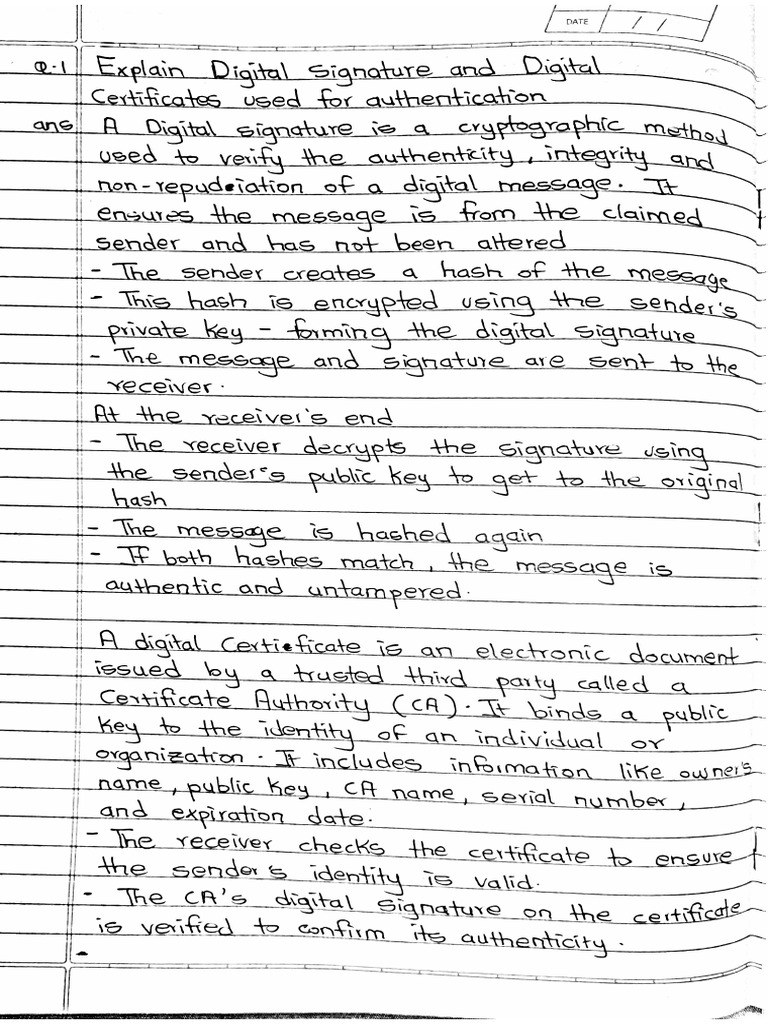 DATE / /
Q.1 Explain Digital Signature and Digital
Certificates used for authentication
ans A Digital signature is a cryptographic method
used to verify the authenticity, integrity and
non-repudiation of a digital message. It
ensures the message is from the claimed
sender and has not been altered
- The sender creates a hash of the message
- This hash is encrypted using the sender's
private key - forming the digital signature
- The message and signature are sent to the
receiver.
At the receiver's end
- The receiver decrypts the signature using
the sender's public key to get to the original
hash
- The message is hashed again
- If both hashes match, the message is
authentic and untampered.
A digital Certificate is an electronic document
issued by a trusted third party called a
Certificate Authority (CA). It binds a public
key to the identity of an individual or
organization. It includes information like owner's
name, public key, CA name, serial number,
and expiration date.
- The receiver checks the certificate to ensure
the sender's identity is valid.
- The CA's digital signature on the certificate
is verified to confirm its authenticity.
-